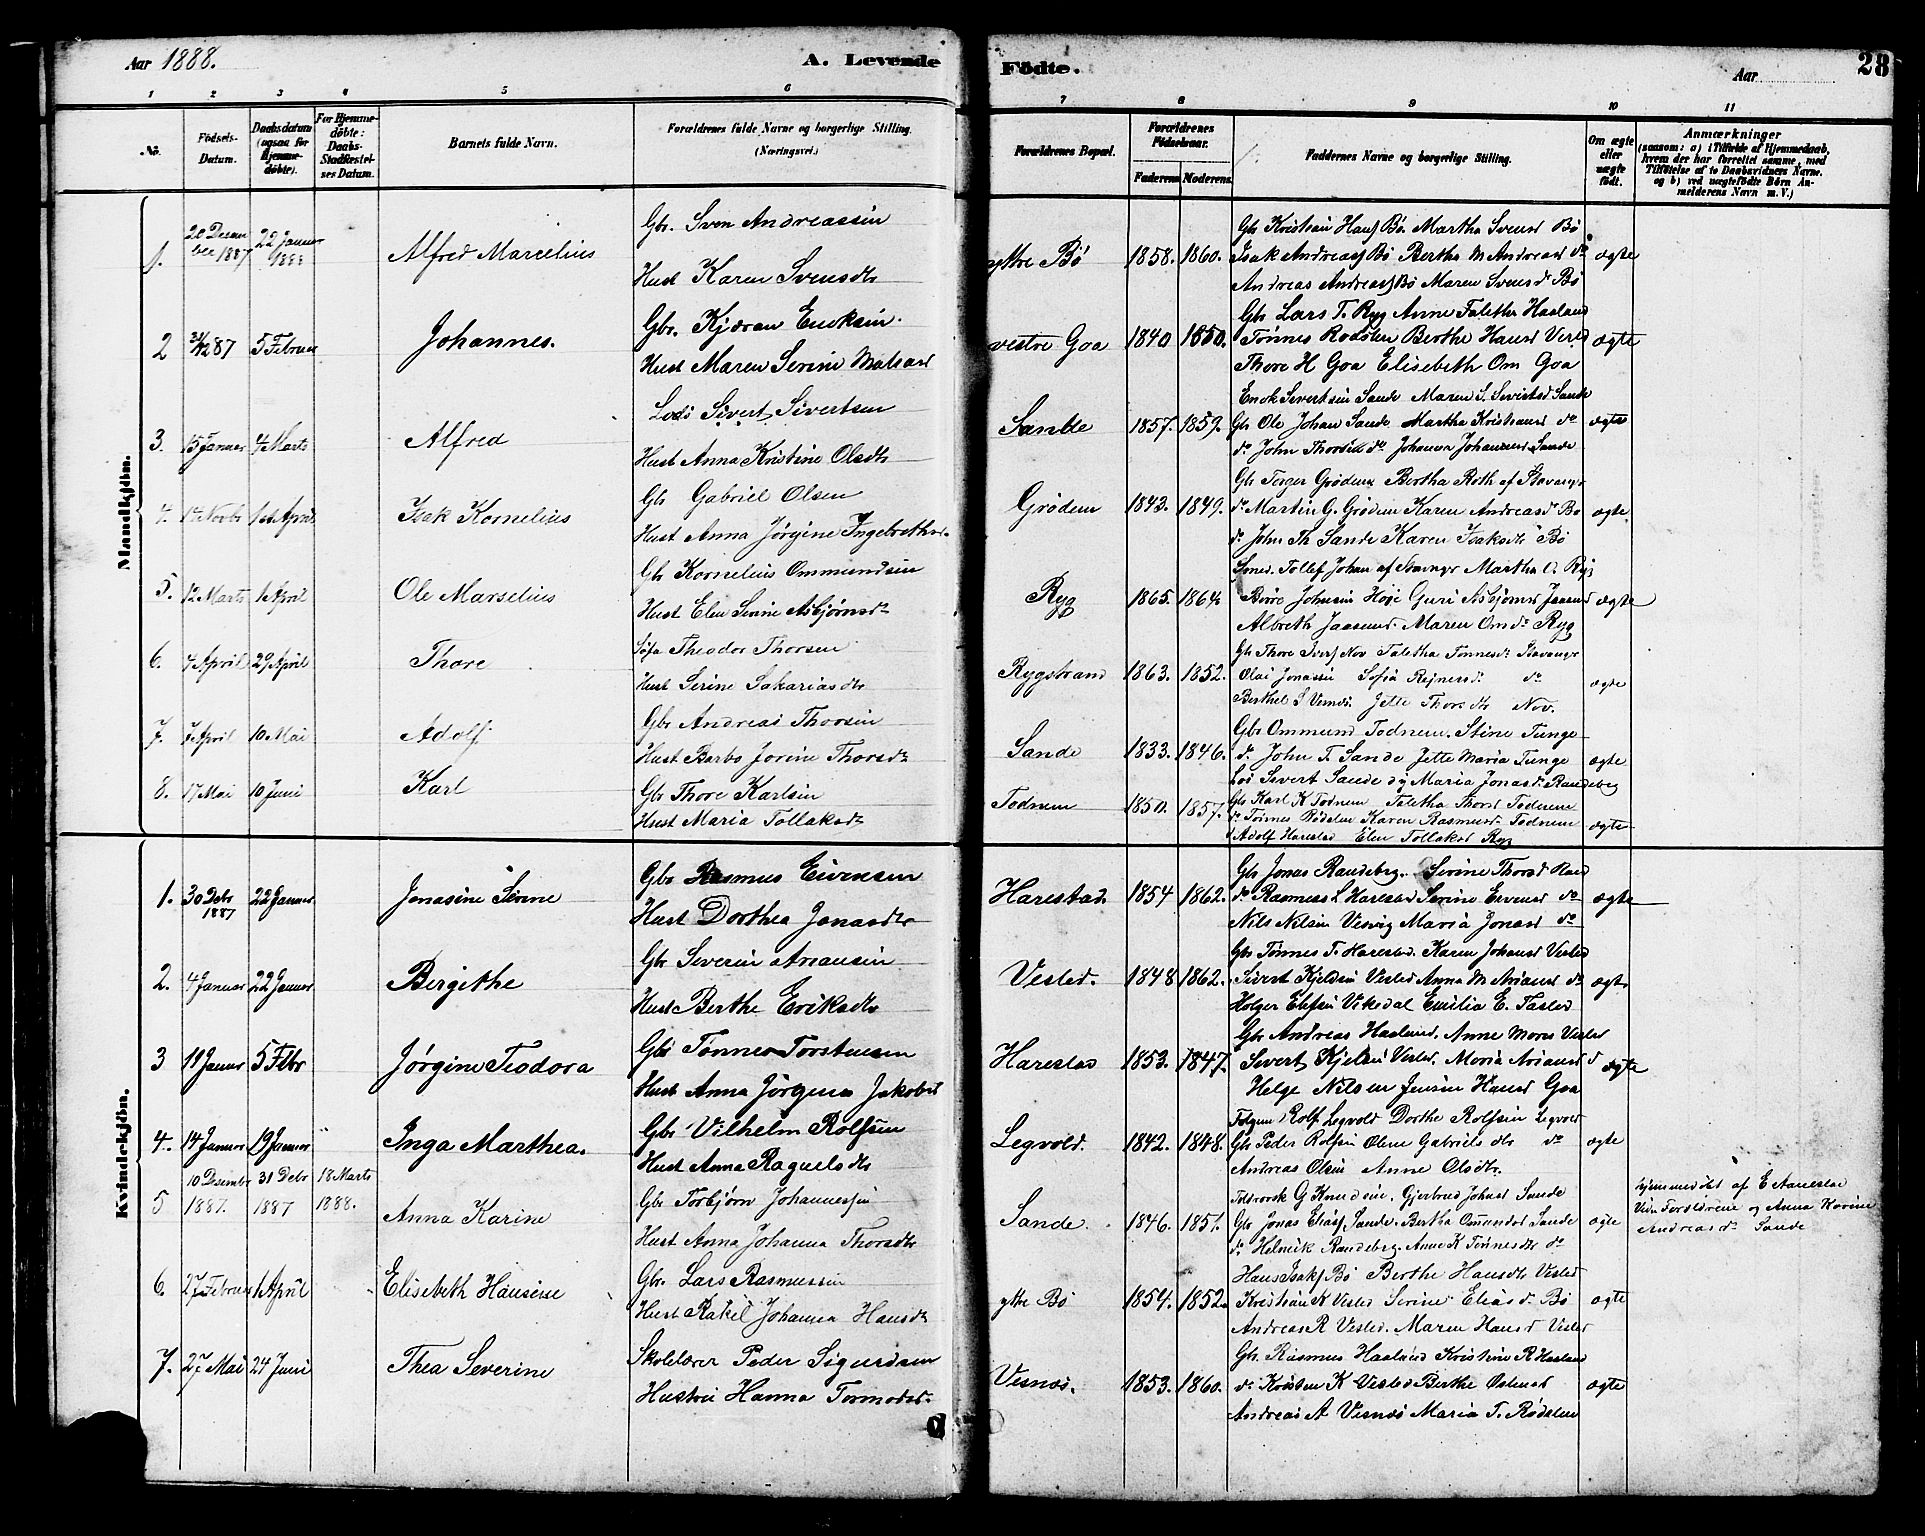 Aar 1888.
A. Levende
Fødte.
Aar
28
1 2 3 4 5 6
7 8 9 10 11
No.
Fødsels-Datum.
Daabsdatum (ogsaa for Hjemmedøbte).
For Hjemmedøbte: Daabs-Stadfæstelses Datum.
Barnets fulde Navn.
Forældrenes fulde Navne og borgerlige Stilling.
(Næringsvei.)
Forældrenes Bopæl.
Forældrenes Fødselsaar.
Faderens. Moderens.
Faddernes Navne og borgerlige Stilling.
Om ægte eller uægte født.
Anmærkninger
(saasom: a) i Tilfælde af Hjemmedaab, hvem der har forrettet samme, med Tilføielse af to Daabsvidners Navne. og b) ved uægtefødte Børn Anmelderens Navn m. V.)
Mandkjøn.
1. 20 Decem ber 1887 22 Januar 1888 Alfred Marcelius
Gbr. Sven Andreassen
Hust Karen Svensdtr
ytre Bø 1858. 1860. ægte
Gbr Kristian Hansf Bø Martha Svensd Bø
Isak Andreasf Bø Bertha M Andreasd do
Andreas Andreasf Bø Maren Svensd Bø
2 87 5 Februar Johannes.
Gbr. Kjøran Eriksen.
Hust Maren Serine
vestre Goa 1840 1850. ægte
Gbr Lars T. Ryg Anne Taletha Haaland
Tønnes Rødslen Berthe Hansd Vistd
Thore H Goa Elisebeth Om Goa
3. 15 Januar 4 Marts Alfred
Lods Sivert Sivertsen
Hust Anna Kristine Olsdtr
Sande 1857. 1859. ægte
Enok Sivertsen Sande Maren S. Sivertsd Sande
Gbr Ole Johan Sande Martha Kristiansd do
do John Thorsen do Johanna Johannesd Sande
4. 1ste April Isak Kornelius
Gbr Gabriel Olsen
Hust Anna Jørgine Ingebrethsd.
Grødem 1843. 1849. ægte.
Gbr Torger Grødem Bertha Roth af Stavanger
do Martin G. Grødem Karen Andreasd Bø
do John Th Sande Karen Isaksdtr Bø
5. 12 Marts 1 April Ole Marselius
Gbr Kornelius Ommundsen
Hust Elen Serine Asbjørnsd
Ryg 1865. 1864. ægte
Tollef Johan af Stavanger Martha O. Ryg
Børe Johnsen Høie Guri Asbjørnsd
Albreth Jaasund. Maren Omd Ryg
6. 4 April 29 April Thore
Theodor Thorsen
Hust Serine Sakariasdtr
Rygstrand 1863. 1852. ægte
Gbr Thore Iversf Nov Taletha Tønnesd Stavanger
Olai Jonassen Sofia Rejnersd do
Berthel S Visnes. Jette Thorsdtr Nov.
7. 7 April 10 Mai Adolf
Gbr Andreas Thorsen
Hust Barbo Jorine Thorsd
Sande 1833. 1846. ægte
Gbr Ommund Todnem. Stine Tunge
do John T. Sande Jette Maria Tunge
Lods Sivert Sande Maria Jonasd Randeberg
8. 17 Mai 10 Juni Karl
Gbr Thore Karlsen
Hust Maria Tollaksd
Todnem 1850. 1857. ægte
Gbr Karl K Todnem Taletha Thorsd Todnem
do Tønnes Rødslen Karen Rasmusd Todnem
Adolf Harestad Elen Tollaksd Ryg
Kvindekjøn.
1. 30 Debr 1887 22 Januar Jonasine Serine
Gbr Rasmus Eivensen
Hust Dorthea Jonasdtr
Harestad 1854 1862. ægte
Gbr Jonas Randeberg. Serine Thorsd
do Rasmus L Harestad Serine Ervensd do
Nils Nilsen Visvig Maria Jonasd do
2. 4 Januar 22 Januar Bergithe
Gbr Severin Ariansen
Hust Berthe Eriksdtr
Vested. 1848 1862. ægte
Gbr Tønnes T. Harestad. Karen Johansd Vested
Sivert Kjeldsen Vested Anna M Ariansd do
Holger Elefsen Vikedal Emilia E. Tasted
3 11 Januar 5 Febr Jørgine Teodora
Gbr Tønnes Torstensen
Hust Anna Jørgine Jakobsd
Harestad 1853. 1847. ægte
Gbr Andreas Haaland. Anne Vested
Sivert Kjelsen Vested. Maria Ariansd do
Helge Nilsen Jensine Hansd Goa
4. 14 Januar 19 Januar " Inga Marthea.
Gbr Vilhelm Rolfsen
Hust Anna Raguelsdtr
Legvold. 1842. 1848. ægte
Rolf Legvold Dorthe Rolfsen Legvold
Gbr Peder Rolfsen Olene Gabrielsdtr do
Andreas Olsen Anne Olsdtr.
5 10 Desembr 1887. 31 Debr 1887 18 Marts 1888. Anna Karine
Gbr Torbjørn Johannessen
Hust Anna Johanna Thorsdtr
Sande. 1846. 1851. ægte
G Knudsen. Gjertrud Johnsd Sande
Gbr Jonas Eliasf Sande. Bertha Omundsd Sande
do Helmik Randeberg. Anne K Tønnesdtr do
hjemmedøbt af E
Vidn Foreldrene og Anna Karine
Andreasd Sande
6. 27 Februar 1 April Elisebeth Hansine
Gbr. Lars Rasmussen
Hust Rakel Johanna Hansdtr
ytre Bø 1854. 1852. ægte
Hans Isaksf Bø Berthe Hansdtr Vested
Kristian K Vested Serine Eliasd Bø
Andreas R Vested. Maren Hansd Vested
7. 27 Mai 24 Juni Thea Severine
Skolelærer Peder Sigurdsen
Hustru Hanna Tormodsd.
Visnes. 1853. 1860. ægte
Gbr. Rasmus Haaland Kristine R Haaland
do Kristen K Vested Berthe Ostensd
Andreas A Visnes Maria T. Rødslen